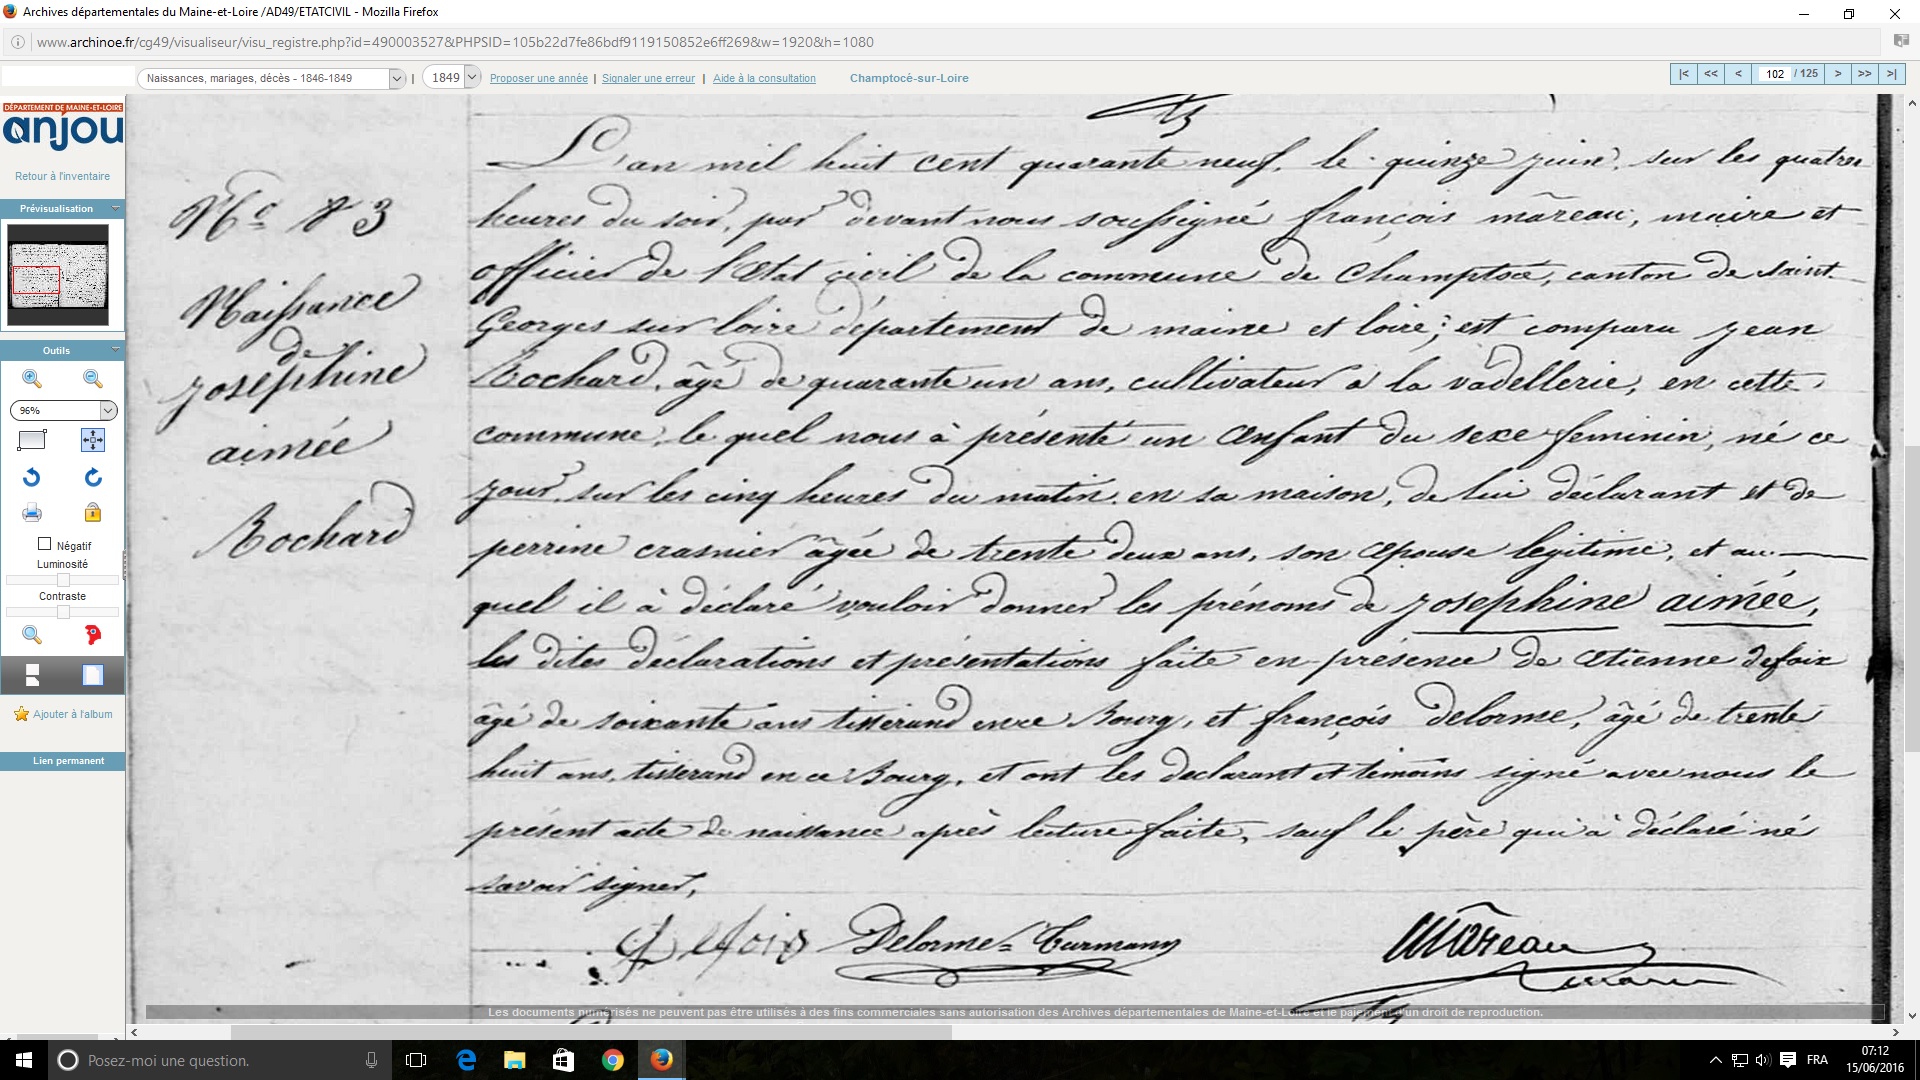 Archives départementales du Maine-et-Loire /AD49/ETATCIVIL - Mozilla Firefox
www.archinoe.fr/cg49/visualiseur/visu_registre.php?id=490003527&PHPSID=105b22d7fe86bdf9119150852e6ff269&w=1920&h=1080
Naissances, mariages, décès - 1846-1849 | 1849 Proposer une année | Signaler une erreur | Aide à la consultation Champtocé-sur-Loire |< << < 102 / 125 > >> >|
DÉPARTEMENT DE MAINE-ET-LOIRE
anjou
Retour à l'inventaire
Prévisualisation
Outils
96%
Négatif
Luminosité
Contraste
Ajouter à l'album
Lien permanent
Naissance
de
josephine
aimée
Rochard
L'an mil huit cent quarante neuf, le quinze juin, sur les quatre
heures du soir, par devant nous soussigné françois mâreau, maire et
officier de l'Etat civil de la commune de Champtocé, canton de saint
Georges sur loire département de maine et loire; est comparu jean
Rochard, âgé de quarante un ans, cultivateur à la vadellerie, en cette
commune, le quel nous à présenté un Enfant du sexe feminin, né ce
jour, sur les cinq heures du matin, en sa maison, de lui déclarant et de
perrine crasnier âgée de trente deux ans, son Epouse légitime, et au
quel il à déclaré vouloir donner les prénoms de josephine aimée,
les dites déclarations et présentations faite en présence de Etienne defoix
âgé de soixante ans tisserand en ce Bourg, et françois delorme, âgé de trente
huit ans, tisserand en ce Bourg, et ont les declarant et témoins signé avec nous le
présent acte de naissance après lecture faite, sauf le père qui à déclaré né
savoir signer,
Delorme= mâreau
maire
Les documents numérisés ne peuvent pas être utilisés à des fins commerciales sans autorisation des Archives départementales de Maine-et-Loire et le paiement d'un droit de reproduction.
Posez-moi une question.
FRA
07:12
15/06/2016